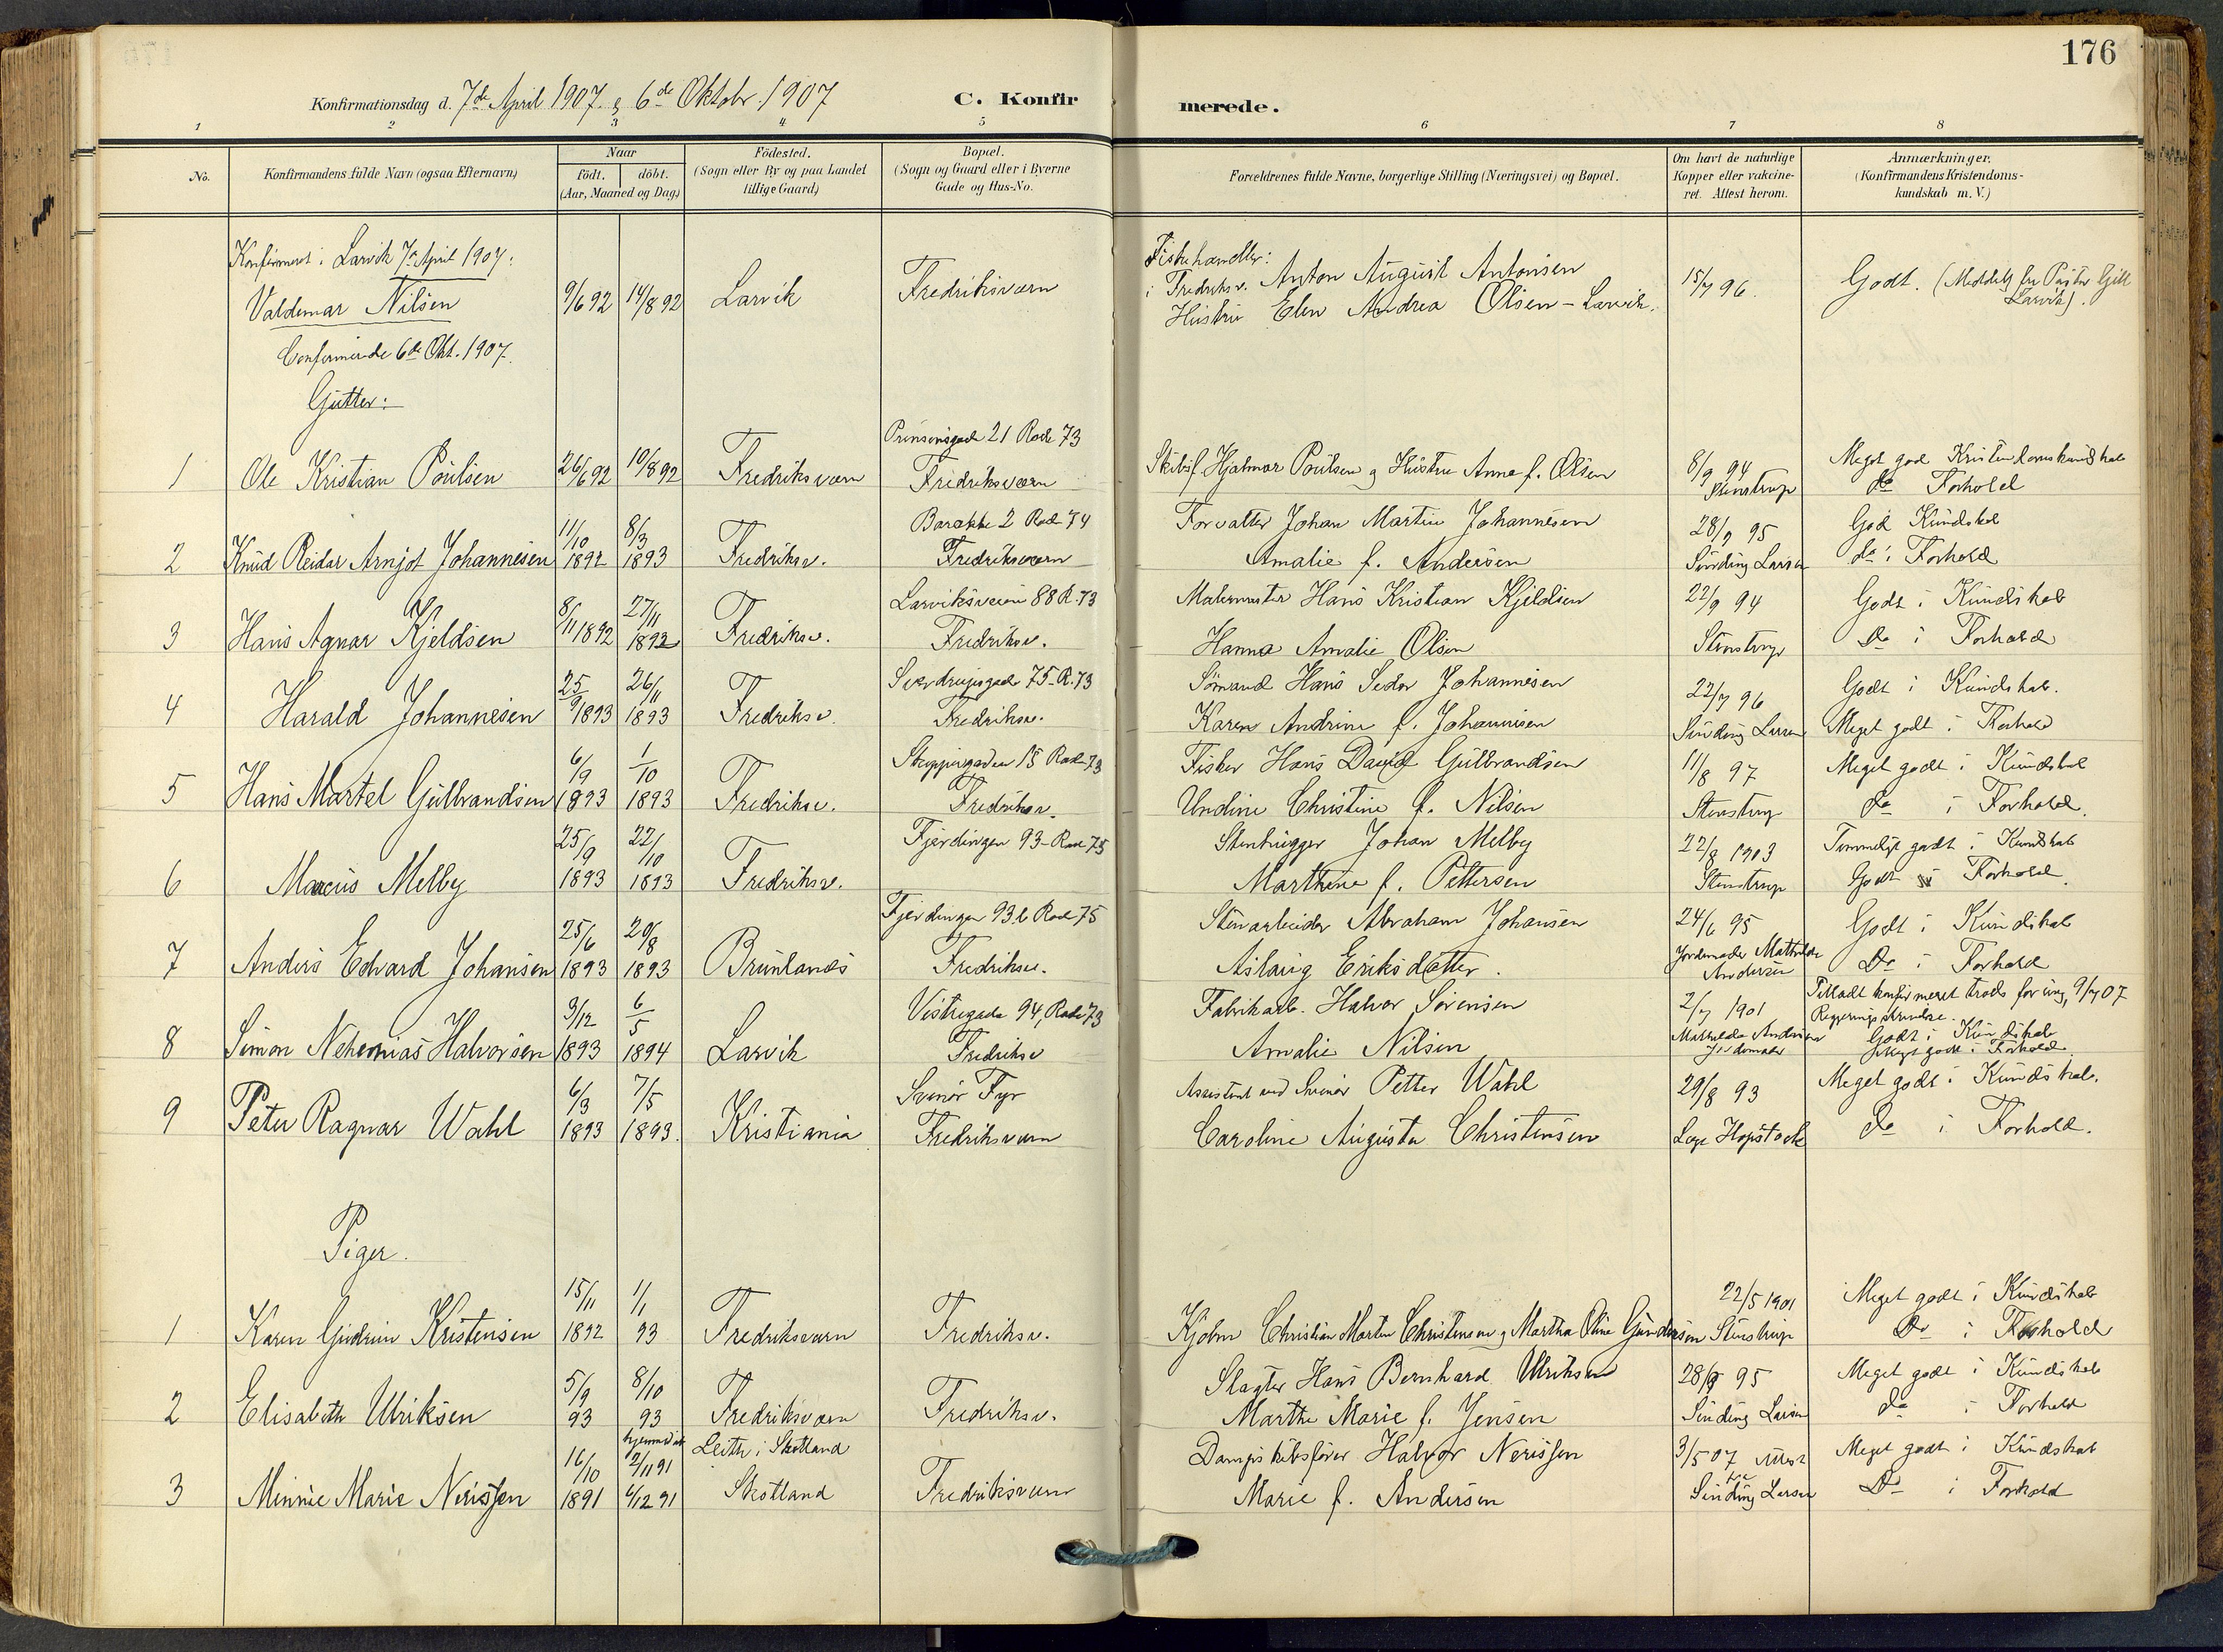 176
Konfirmationsdag d. 7de April 1907 & 6de Oktobr. 1907
C. Konfirmerede.
1 2 3 4 5 6 7 8
No.
Konfirmandens fulde Navn (ogsaa Efternavn)
Naar
födt. döbt.
(Aar, Maaned og Dag)
Födested.
(Sogn eller By og paa Landet
tillige Gaard)
Bopæl.
(Sogn og Gaard eller i Byerne
Gade og Hus-No.
Forældrenes fulde Navne, borgerlige Stilling (Næringsvei) og Bopæl.
Om havt de naturlige
Kopper eller vakcine-
ret. Attest herom.
Anmærkninger.
(Konfirmandens Kristendoms-
kundskab m. V.)
Konfirmeret i Larvik 7de April 1907:
Valdemar Nilsen 9/6 92 14/8 92 Larvik Fredriksværn
Fiskehandler:
i Fredriksv. Anton August Antonsen
Hustru Elen Andrea Olsen - Larvik.
15/7 96
Godt. (Meddelt fra Pastor
Larvik).
Confirmerede 6de Okt. 1907.
Gutter:
1 Ole Kristian Poulsen 26/6 92 10/8 92 Fredriksværn
Prinsensgade 21 Rode 73
Fredriksværn
Skibsf. Hjalmar Poulsen & Hustru Anna f. Olsen
8/9 94
Stenstrup
Meget god Kristendomskundskab
do Forhold
2 Knud Reidar Arnjot Johannesen 11/10 1892 8/3 1893 Fredriksv.
Barakke 2 Rode 74
Fredriksværn
Forvalter Johan Martin Johannesen
Amalie f. Andersen
28/9 95
Sinding Larsen
God Kundskab
do i Forhold
3 Hans Agnar Kjeldsen 8/11 1892 27/11 1892 Fredriksv.
Larviksveien 88 R. 73
Fredriksv.
Malermester Hans Kristian Kjeldsen
Hanna Amalie Olsen
22/9 94
Stenstrup
Godt i Kundskab
do i Forhold
4 Harald Johannesen 25/9 1893 26/11 1893 Fredriksv.
Sverdrupsgade 75-R. 73
Fredriksv.
Sømand Hans Sedor Johannesen
Karen Andrine f. Johannisen
22/7 96
Sinding Larsen
Godt i Kundskab.
Meget godt i Forhold
5 Hans Martel Gulbrandsen 6/9 1893 1/10 1893 Fredriksv.
Skippergaden 15 Rode 73
Fredriksv.
Fisker Hans David Gulbrandsen
Undine Christine f. Nilsen
11/8 97
Stenstrup
Meget godt i Kundskab
do i Forhold.
6 Marius Melby 25/9 1893 22/10 1893 Fredriksv.
Fjerdingen 93- Rode 75
Stenhugger Johan Melby
Marthine f. Pettersen
22/8 1903
Stenstrup
Temmelig godt i Kundskab
Godt i Forhold.
7 Anders Edvard Johansen 25/6 1893 20/8 1893 Brunlanes
Fjerdingen 93 b Rode 75
Fredriksv.
Stenarbeider Abraham Johansen
Aslaug Eriksdatter.
24/6 95
Jordemoder Mathilde
Andersen
Godt i Kundskab
Do i Forhold
8 Simon Nehemias Halvorsen 3/12 1893 6/5 1894 Larvik
Vestregade 94, Rode 73
Fredriksv
Fabrikarb. Halvor Sörensen
Amalie Nilsen
2/7 1901
Mathilde Andersen
Jordemoder
Tilladt konfirmeret trods for ung, 9/7 07
Regjeringsskrivelse.
Godt i Kundskab
Meget godt i Forhold.
9 Peter Ragnar Wahl 6/3 1893 7/5 1893. Kristiania
Svenör Fyr
Fredriksværn
Assistent ved Svenör Petter Wahl
Caroline Augusta Christensen
29/8 93
Læge Hopstock
Meget godt i Kundskab.
do i Forhold.
Piger.
1 Karen Gudrun Kristensen 15/11 1892 1/1 93 Fredriksværn Fredriksv.
Christian Morten Christensen & Martha Oline Gundersen
22/5 1901
Stenstrup
Meget godt i Kundskab
Do i Forhold
2 Elisabeth Ulriksen 5/9 93 8/10 93 Fredriksværn Fredriksv.
Slagter Hans Bernhard Ulriksen
Marthe Marie f. Jensen
28/9 95
Sinding Larsen
Meget godt i Kundskab
do i Forhold
3 Minnie Marie Nerissen 16/10 1891 hjemmedøbt 2/11 91 6/12 91
Leith i Skotland
Skotland
Fredriksværn
Dampskibsfører Halvor Nerissen
Marie f. Andersen
3/5 07
Sinding Larsen
Meget godt i Kundskab
Do i Forhold